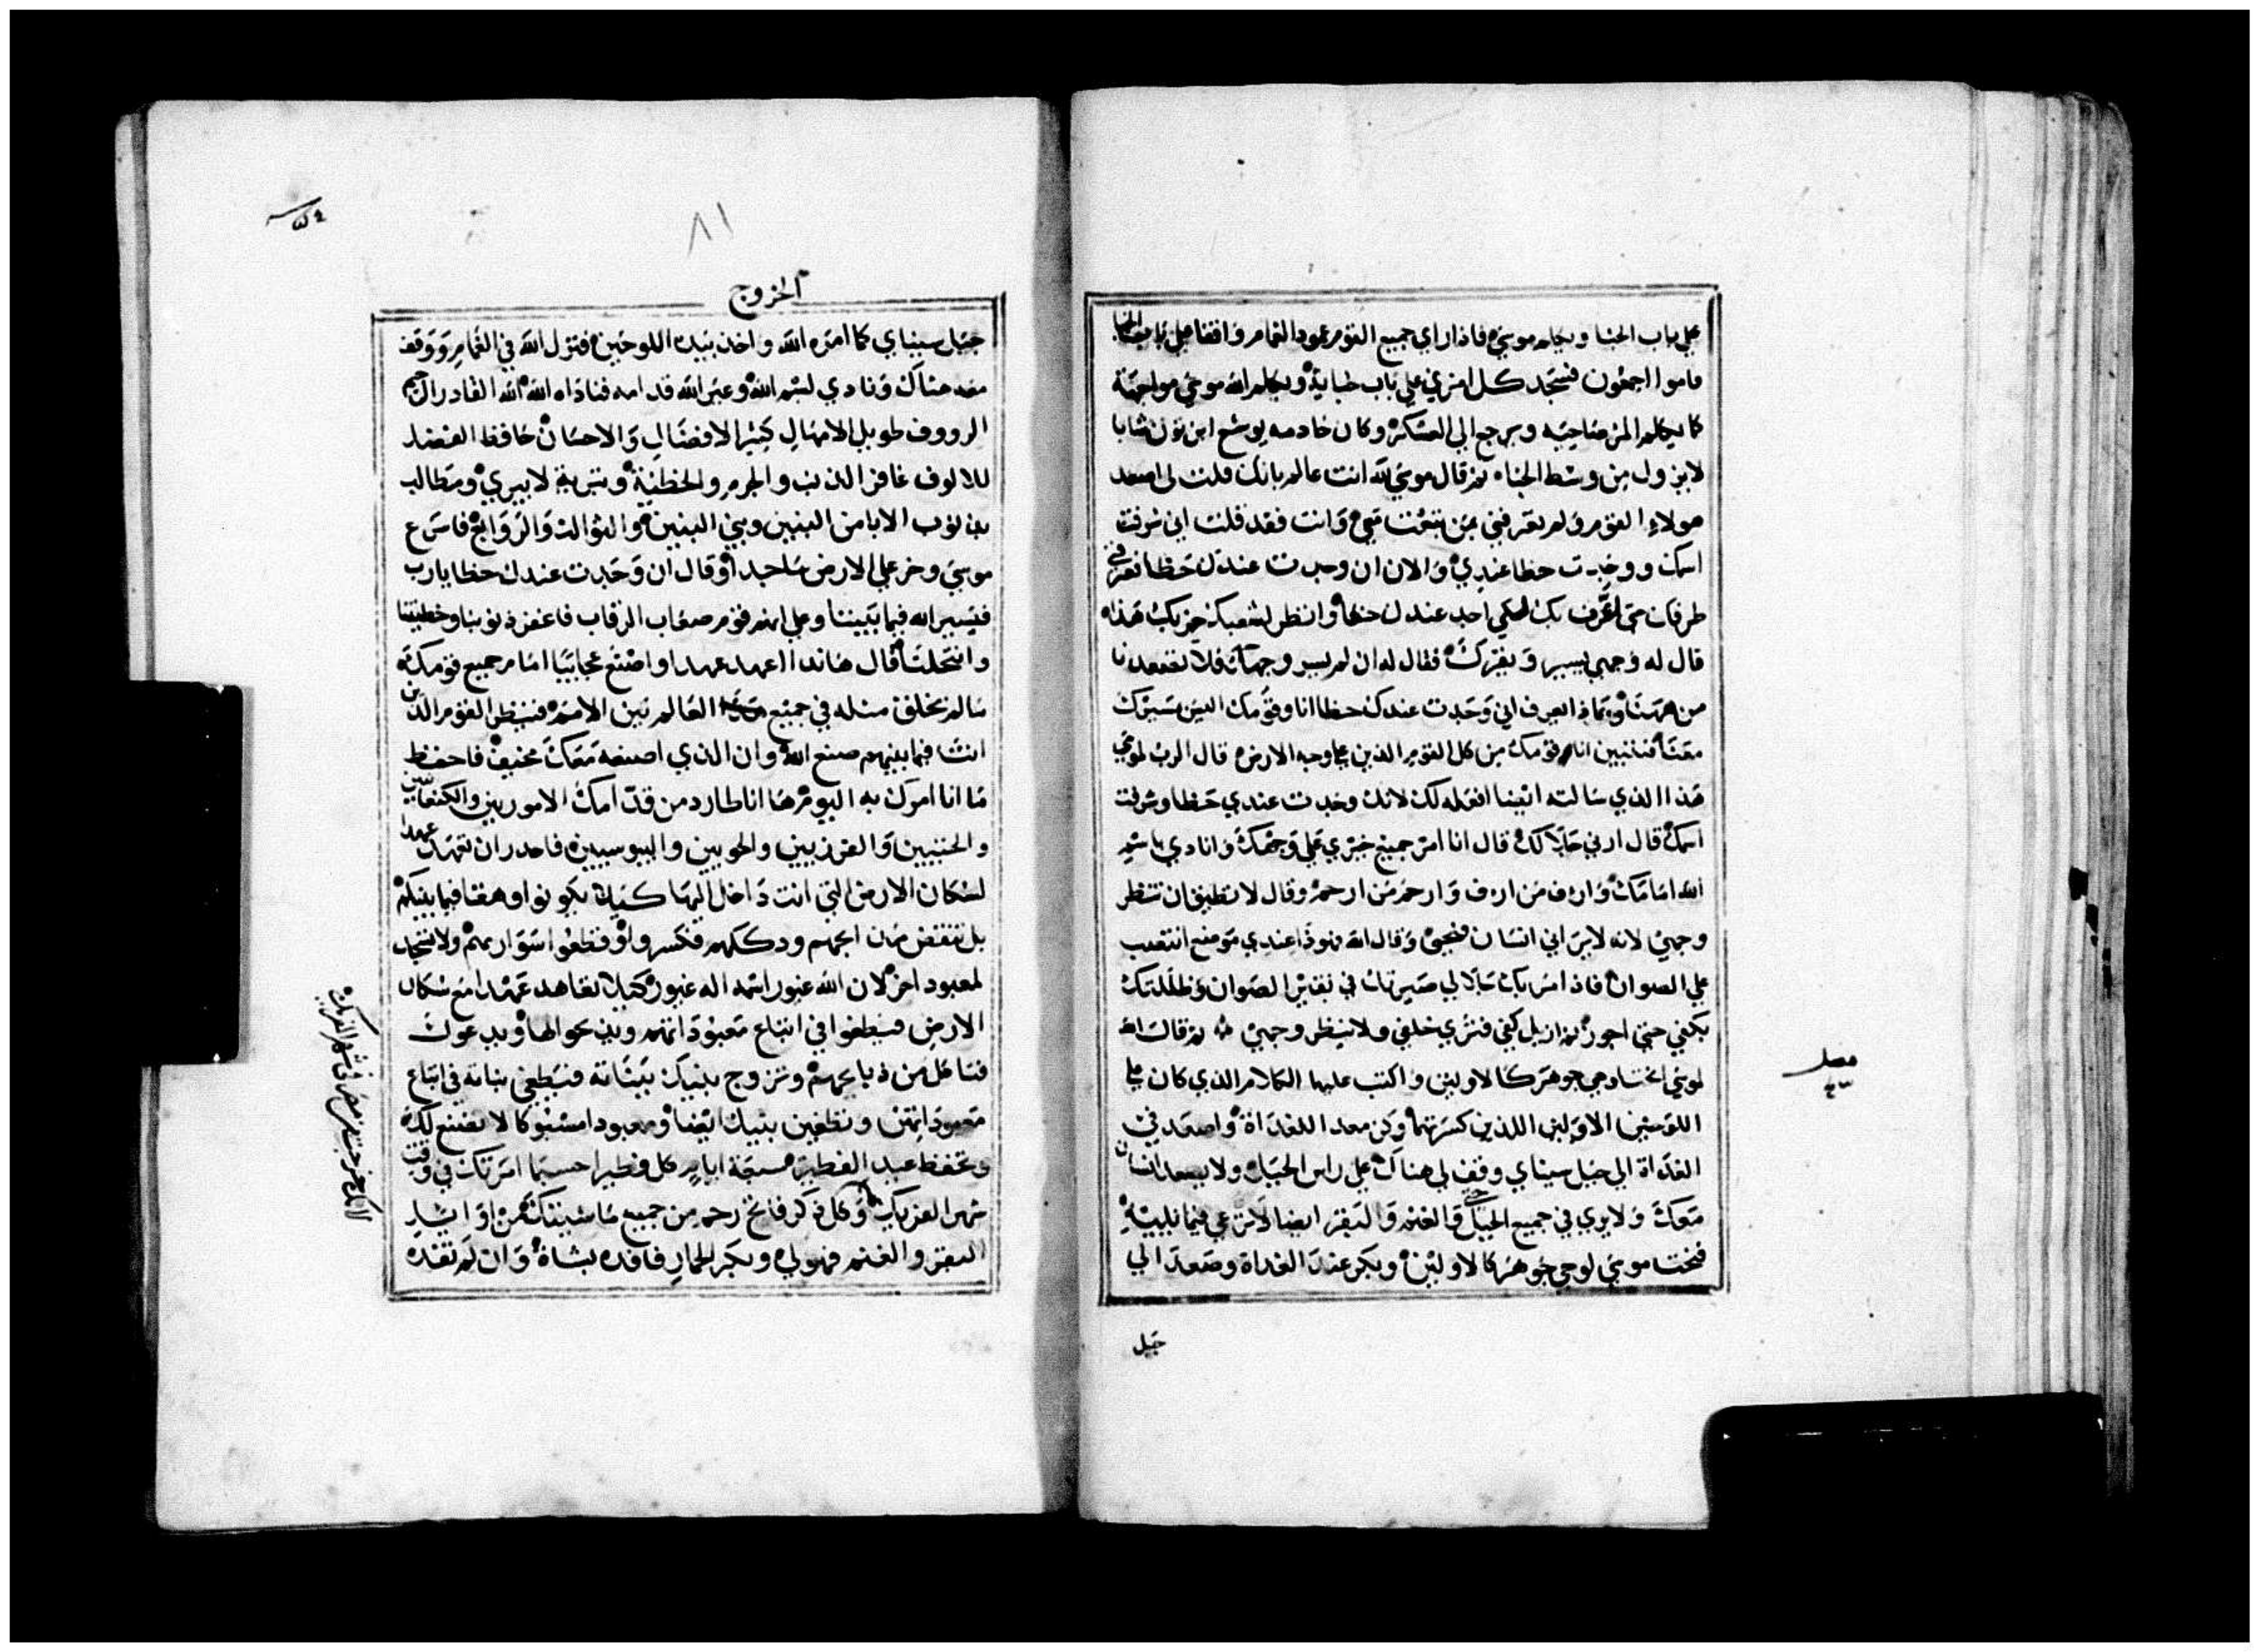 علي باب الخبا ويكلم موسي فاذا راي جميع القوم عمود الغمام واقفا علي باب الخبا
قاموا اجمعون فسجد كل امري علي باب خبايه ويكلم الله موسي مواجهة
كما يكلم المر صاحبه ويرجع الي العسكر وكان خادمه يوشع ابن نون شابا
لا يزول من وسط الخباء ثم قال موسي لله انت عالم بانك قلت لي اصعد
هولاء القوم ولم تعرفني بمن تبعث معي وانت فقد قلت اني شرفت
اسمك ووجدت حظا عندي والان ان وجدت عندك حظا فعرفني
طرقك حتي اعرف بك لكي اجد عندك حظا وانظر لشعبك حزبك هذا
قال له وجهي يسير ويقرك فقال له ان لم يسير وجهك فلا تصعدنا
من ههنا وبماذا يعرف اني وجدت عندك حظا انا وقومك اليس تسيرك
معنا فنتبين انا وقومك من كل القوم الذين علي وجه الارض قال الرب لموسي
هذا الذي سالته ايضا افعله لك لانك وجدت عندي حظا وشرفت
اسمك قال ارني جلالك قال انا امر جميع خيري علي وجهك وانادي باسم
الله امامك وارف من ارف وارحم من ارحم وقال لا تطيق ان تنظر
وجهي لانه لا يراني انسان فيحيي وقال الله هوذا عندي موضع انتصب
علي الصوان فاذا امر بك جلالي صيرتك في نقير الصوان وظللتك
بكفي حتي اجوز ثم ازيل كفي فتري خلفي ولا ينظر وجهي ثم قال الله
لموسي انحت لوحي جوهر كالاولين واكتب عليها الكلام الذي كان علي
اللوحين الاولين اللذين كسرتهما وكن معدا للغداة واصعد في
الغداة الي جبل سيناي وقف لي هناك علي راس الجبل ولا يصعد انسان
معك ولا يري في جميع الجبل حتي والغنم والبقر ايضا لا ترعي فيما يليه
فنحت موسي لوحي جوهر كالاولين وبكر عند الغداة وصعد الي
جبل
فصل
٣٤
٨١
الخروج
جبل سيناي كما امره الله واخذ بيده اللوحين فنزل الله في الغمام ووقف
معه هناك ونادي بسم الله وعبر الله قدامه فناداه الله الله القادر الرحيم
الرووف طويل الامهال كثير الافضال والاحسان حافظ الفضل
للالوف غافر الذنب والجرم والخطية وتبرية لا يبري ومطالب
بذنوب الابا من البنين وبني البنين والثوالث والروابع فاسرع
موسي وخر علي الارض ساجدا وقال ان وجدت عندك حظا يا رب
فيسير الله فيما بيننا وعلي انهم قوم صعاب الرقاب فاغفر ذنوبنا وخطيتنا
وانتحلنا قال هانذا اعهد عهدا واصنع عجايبا امام جميع قومك
ما لم تخلق مثله في جميع العالم بين الامم فينظر القوم الذين
انت فيما بينهم صنع الله وان الذي اصنعه معك مخيف فاحفظ
ما انا امرك به اليوم ها انا طارد من قدامك الاموريين والكنعانيين
والحثيين والفرزيين والحويين واليبوسيين فاحدر ان تعهد عهدا
لسكان الارض التي انت داخل اليها كيلا يكونوا وهقا فيما بينكم
بل تنقض مذابحهم ودككهم فكسروا وقطعوا سواريهم ولا تسجد
لمعبود اخر لان الله غيور اسمه اله غيور كيلا تعاهد عهدا مع سكان
الارض فيطغوا في اتباع معبوداتهم ويذبحوا لها ويدعوك
فتاكل من ذبايحهم وتزوج بنيك ببناته فيطغي بناته في اتباع
معبوداتهن وتطغين بنيك ايضا ومعبودا مسبوكا لا تصنع لك
وتحفظ عيد الفطير سبعة ايام كل فطيرا حسبما امرتك في وقت
شهر الفريك وكل ذكر فاتح رحم من جميع ماشيتك من اوايل
البقر والغنم فهو لي وبكر الحمار فافده بشاة وان لم تفده
لانك خرجت من مصر في شهر الفريك